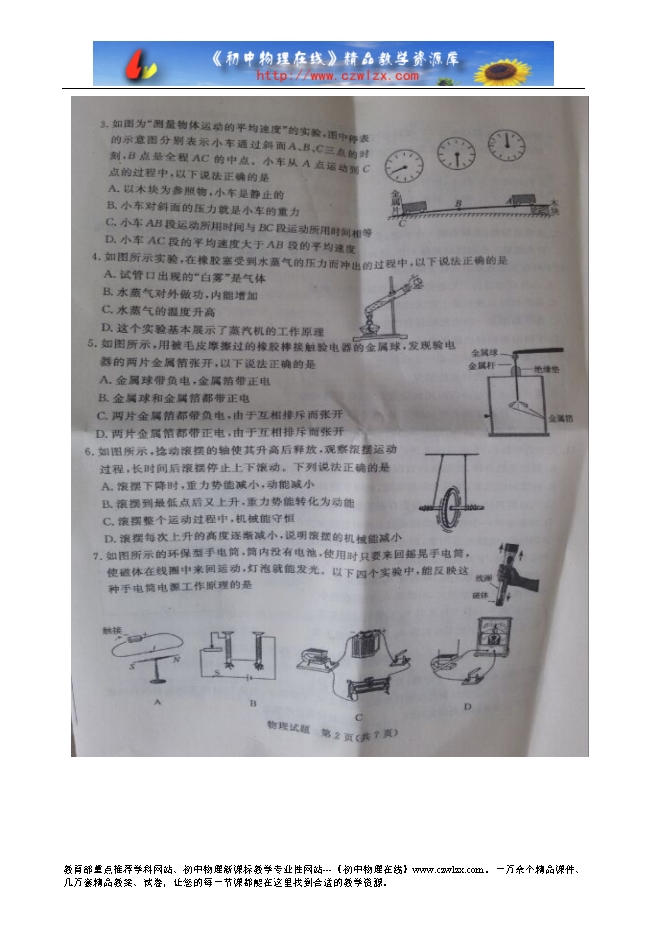 《初中物理在线》精品教学资源库
http://www.czwlzx.com
3. 如图为“测量物体运动的平均速度”的实验,图中停表
的示意图分别表示小车通过斜面A、B、C三点的时
刻,B 点是全程 AC 的中点。小车从 A 点运动到 C
点的过程中,以下说法正确的是
A. 以木块为参照物,小车是静止的
B. 小车对斜面的压力就是小车的重力
C. 小车 AB 段运动所用时间与 BC 段运动所用时间相等
D. 小车 AC 段的平均速度大于 AB 段的平均速度
金属片
C
B
A
木块
4. 如图所示实验,在橡胶塞受到水蒸气的压力而冲出的过程中,以下说法正确的是
A. 试管口出现的“白雾”是气体
B. 水蒸气对外做功,内能增加
C. 水蒸气的温度升高
D. 这个实验基本展示了蒸汽机的工作原理
5. 如图所示,用被毛皮摩擦过的橡胶棒接触验电器的金属球,发现验电
器的两片金属箔张开,以下说法正确的是
A. 金属球带负电,金属箔带正电
B. 金属球和金属箔都带正电
C. 两片金属箔都带负电,由于互相排斥而张开
D. 两片金属箔都带正电,由于互相排斥而张开
金属球
金属杆
绝缘垫
金属箔
6. 如图所示,捻动滚摆的轴使其升高后释放,观察滚摆运动
过程,长时间后滚摆停止上下滚动。下列说法正确的是
A. 滚摆下降时,重力势能减小,动能减小
B. 滚摆到最低点后又上升,重力势能转化为动能
C. 滚摆整个运动过程中,机械能守恒
D. 滚摆每次上升的高度逐渐减小,说明滚摆的机械能减小
7. 如图所示的环保型手电筒,筒内没有电池,使用时只要来回摇晃手电筒,
使磁体在线圈中来回运动,灯泡就能发光。以下四个实验中,能反映这
种手电筒电源工作原理的是
线圈
磁体
触接
S N
S
A
B
C
D
物理试题 第 2 页(共 7 页)
教育部重点推荐学科网站、初中物理新课标教学专业性网站---《初中物理在线》www.czwlzx.com。一万余个精品课件、
几万套精品教案、试卷,让您的每一节课都能在这里找到合适的教学资源。